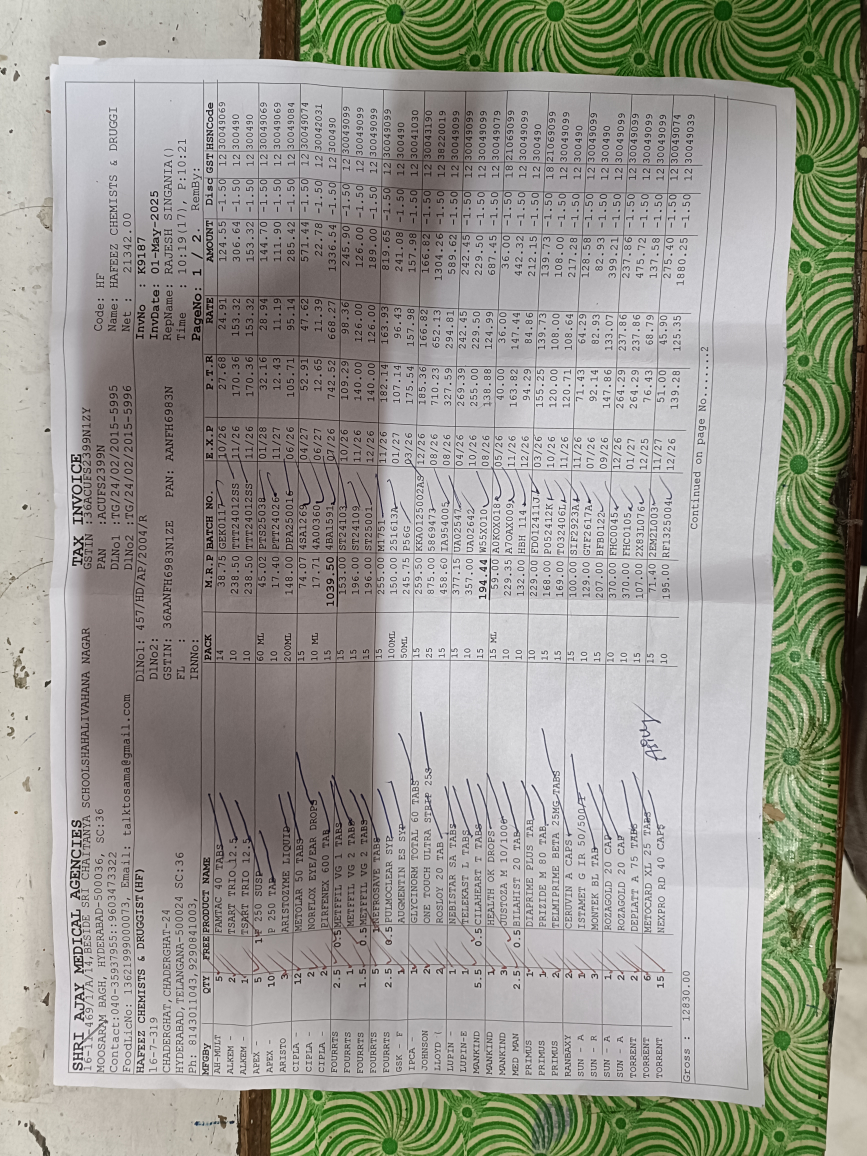 SHRI AJAY MEDICAL AGENCIES TAX INVOICE
16-11-469/1/A/14,BESIDE SRI CHAITANYA SCHOOLSHAHALIVAHANA NAGAR GSTIN :36ACUFS2399N1ZY
MOOSARAM BAGH, HYDERABAD-500036, SC:36 PAN : ACUFS2399N Code: HF
Contact:040-35937955::9603473322 DlNo1 :TG/24/02/2015-5995 Name: HAFEEZ CHEMISTS & DRUGGI
FoodLicNo: 13621999000073, Email: talktosama@gmail.com DlNo2 :TG/24/02/2015-5996 Net : 21342.00
HAFEEZ CHEMISTS & DRUGGIST(HF) DlNo1: 457/HD/AP/2004/R InvNo : K9187
16-7-319 DlNo2: InvDate: 01-May-2025
CHADERGHAT,CHADERGHAT-24 GSTIN: 36AANFH6983N1ZE PAN: AANFH6983N RepName: RAJESH SINGANIA()
HYDERABAD,TELANGANA-500024 SC:36 FL : Time : 10:19(17), P:10:21
Ph: 8143011043,9290841003, IRNNo: PageNo: 1 / 2. RemBy:
MFGBY QTY FREE PRODUCT NAME PACK M.R.P BATCH NO. E.X.P P.T.R RATE AMOUNT Disc GST HSNCode
AH-MULT 5 FAMTAC 40 TABS 14 38.75 GEK0117 10/26 27.68 24.91 124.55 -1.50 12 30049069
ALKEM - 2 TSART TRIO 12.5 10 238.50 TTT24012SS 11/26 170.36 153.32 306.64 -1.50 12 300490
ALKEM - 1 TSART TRIO 12.5 10 238.50 TTT24012SS 11/26 170.36 153.32 153.32 -1.50 12 300490
APEX - 5 1 P 250 SUSP 60 ML 45.02 PTS25038 01/28 32.16 28.94 144.70 -1.50 12 30049069
APEX - 10 P 250 TAB 10 17.40 PTT24026 11/27 12.43 11.19 111.90 -1.50 12 30049069
ARISTO 3 ARISTOZYME LIQUID 200ML 148.00 DPA250016 06/26 105.71 95.14 285.42 -1.50 12 30049084
CIPLA - 12 METOLAR 50 TABS 15 74.07 4SA1269 04/27 52.91 47.62 571.44 -1.50 12 30049074
CIPLA - 2 NORFLOX EYE/EAR DROPS 10 ML 17.71 4A00360 06/27 12.65 11.39 22.78 -1.50 12 30042031
CIPLA - 2 PIRFENEX 600 TAB 15 1039.50 4BA1591 07/26 742.52 668.27 1336.54 -1.50 12 300490
FOURRTS 2.5 0.5 METFFIL VG 1 TABS 15 153.00 ST24103 10/26 109.29 98.36 245.90 -1.50 12 30049099
FOURRTS 1 METFFIL VG 2 TABS 15 196.00 ST24109 11/26 140.00 126.00 126.00 -1.50 12 30049099
FOURRTS 1.5 0.5 METFFIL VG 2 TABS 15 196.00 ST25001 12/26 140.00 126.00 189.00 -1.50 12 30049099
FOURRTS 5 1 NEFROSAVE TABS 15 255.00 M1751 11/26 182.14 163.93 819.65 -1.50 12 30049099
FOURRTS 2.5 0.5 PULMOCLEAR SYP 100ML 150.00 I251613A 01/27 107.14 96.43 241.08 -1.50 12 300490
GSK - F 1 AUGMENTIN ES SYP 50ML 245.75 P56G 03/26 175.54 157.98 157.98 -1.50 12 30041030
IPCA - 1 GLYCINORM TOTAL 60 TABS 15 259.50 KKA0125002AS 12/26 185.36 166.82 166.82 -1.50 12 30043190
JOHNSON 2 ONE TOUCH ULTRA STRIP 25S 25 875.00 5869473 08/26 710.23 652.13 1304.26 -1.50 12 38220019
LLOYD ( 2 ROSLOY 20 TAB 15 458.60 IA954005 08/26 327.59 294.81 589.62 -1.50 12 30049099
LUPIN - 1 NEBISTAR SA TABS 15 377.15 UA02547 04/26 269.39 242.45 242.45 -1.50 12 30049099
LUPIN-E 1 TELEKAST L TABS 10 357.00 UA02642 10/26 255.00 229.50 229.50 -1.50 12 30049099
MANKIND 5.5 0.5 CILAHEART T TABS 15 194.44 W55ZX010 08/26 138.88 124.99 687.45 -1.50 12 30049079
MANKIND 1 HEALTH OK DROPS 15 ML 59.00 A0KOX018 05/26 40.00 36.00 36.00 -1.50 18 21069099
MANKIND 3 JUSTOZA M 10/1000 10 229.35 A7OAX009 11/26 163.82 147.44 442.32 -1.50 12 30049099
MED MAN 2.5 0.5 BILAHIST 20 TAB 10 132.00 HBH 114 12/26 94.29 84.86 212.15 -1.50 12 300490
PRIMUS 1 DIAPRIME PLUS TAB 10 229.00 FD012411V 03/26 155.25 139.73 139.73 -1.50 18 21069099
PRIMUS 1 PRIZIDE M 80 TAB 15 168.00 P052412K 10/26 120.00 108.00 108.00 -1.50 12 30049099
PRIMUS 2 TELMIPRIME BETA 25MG TABS 15 169.00 T032406L 11/26 120.71 108.64 217.28 -1.50 12 300490
RANBAXY 2 CEROVIN A CAPS 15 100.00 SIF2923A 11/26 71.43 64.29 128.58 -1.50 12 30049099
SUN - A 1 ISTAMET G IR 50/500/1 10 129.00 GTF2617A 07/26 92.14 82.93 82.93 -1.50 12 300490
SUN - R 3 MONTEK BL TAB 15 207.00 BFB0122 09/26 147.86 133.07 399.21 -1.50 12 300490
SUN - A 1 ROZAGOLD 20 CAP 10 370.00 FHC0045 12/26 264.29 237.86 237.86 -1.50 12 30049099
SUN - A 2 ROZAGOLD 20 CAP 10 370.00 FHC0105 01/27 264.29 237.86 475.72 -1.50 12 30049099
TORRENT 2 DEPLATT A 75 TABS 15 107.00 2X83L076 12/25 76.43 68.79 137.58 -1.50 12 30049099
TORRENT 6 METOCARD XL 25 TABS 15 71.40 2EM2L003 11/27 51.00 45.90 275.40 -1.50 12 30049074
TORRENT 15 NEXPRO RD 40 CAPS 10 195.00 RF1325004 12/26 139.28 125.35 1880.25 -1.50 12 30049039
Gross : 12830.00 Continued on page No.......2